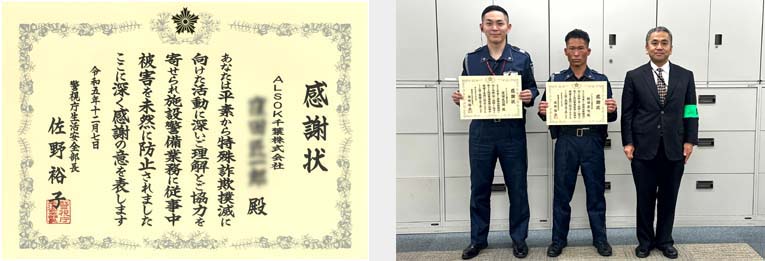 感謝状
ALSOK千葉株式会社
殿
あなたは平素から特殊詐欺撲滅に
向けた活動に深いご理解とご協力を
寄せられ施設警備業務に従事中
被害を未然に防止されました
ここに深く感謝の意を表します
令和五年十二月七日
警視庁生活安全部長
佐野裕子
感謝状
感謝状